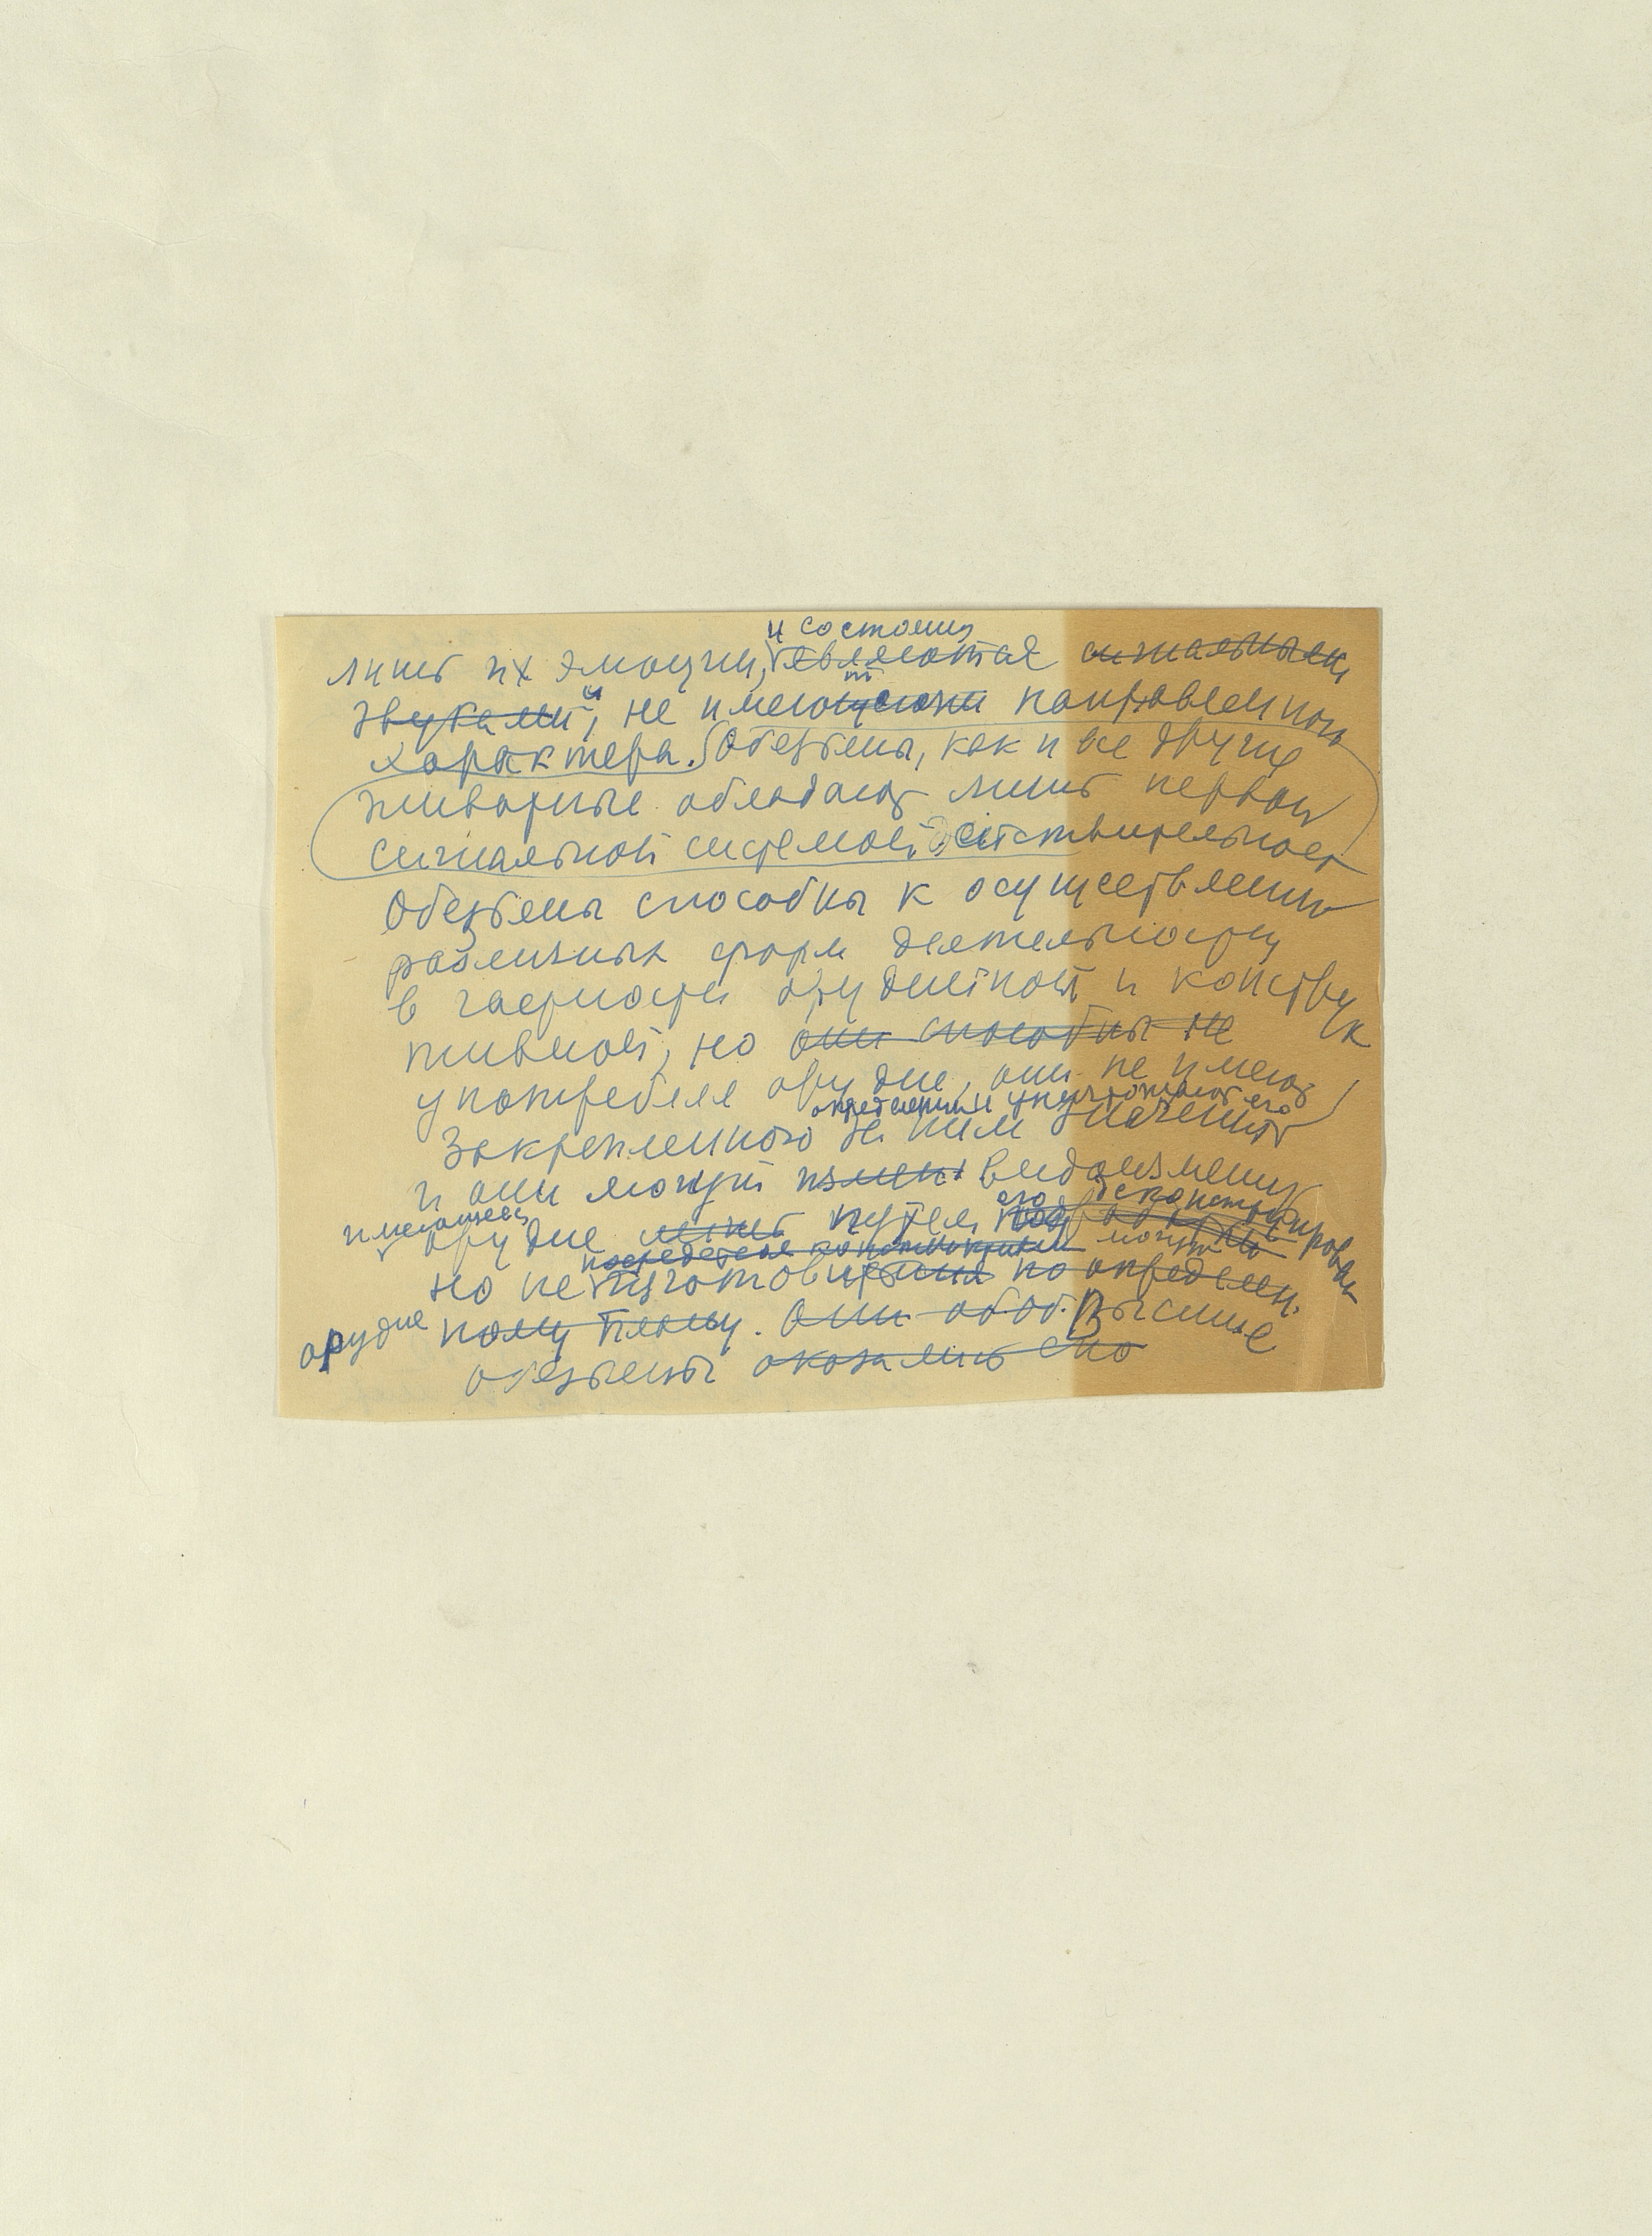 и состояния
лишь их эмоции, являются сигнальными
звуками, и не имеют направленного
характера. Обезьяны, как и все другие
животные обладают лишь первой
сигнальной системой действительност
Обезьяны способны к осуществлению
различных форм деятельности
в частности орудийной и конструк
тивной, но они способны не
употребляя орудие, они не имеют
определенный уничтожают его
закрепленного за ним значения
и они могут измен видоизменить
имеющееся орудие лишь путем его деконструирован
посредством могут
но не изготовления по определен.
орудие ному плану. Они обоб. Высшие
обезьяны оказались спо